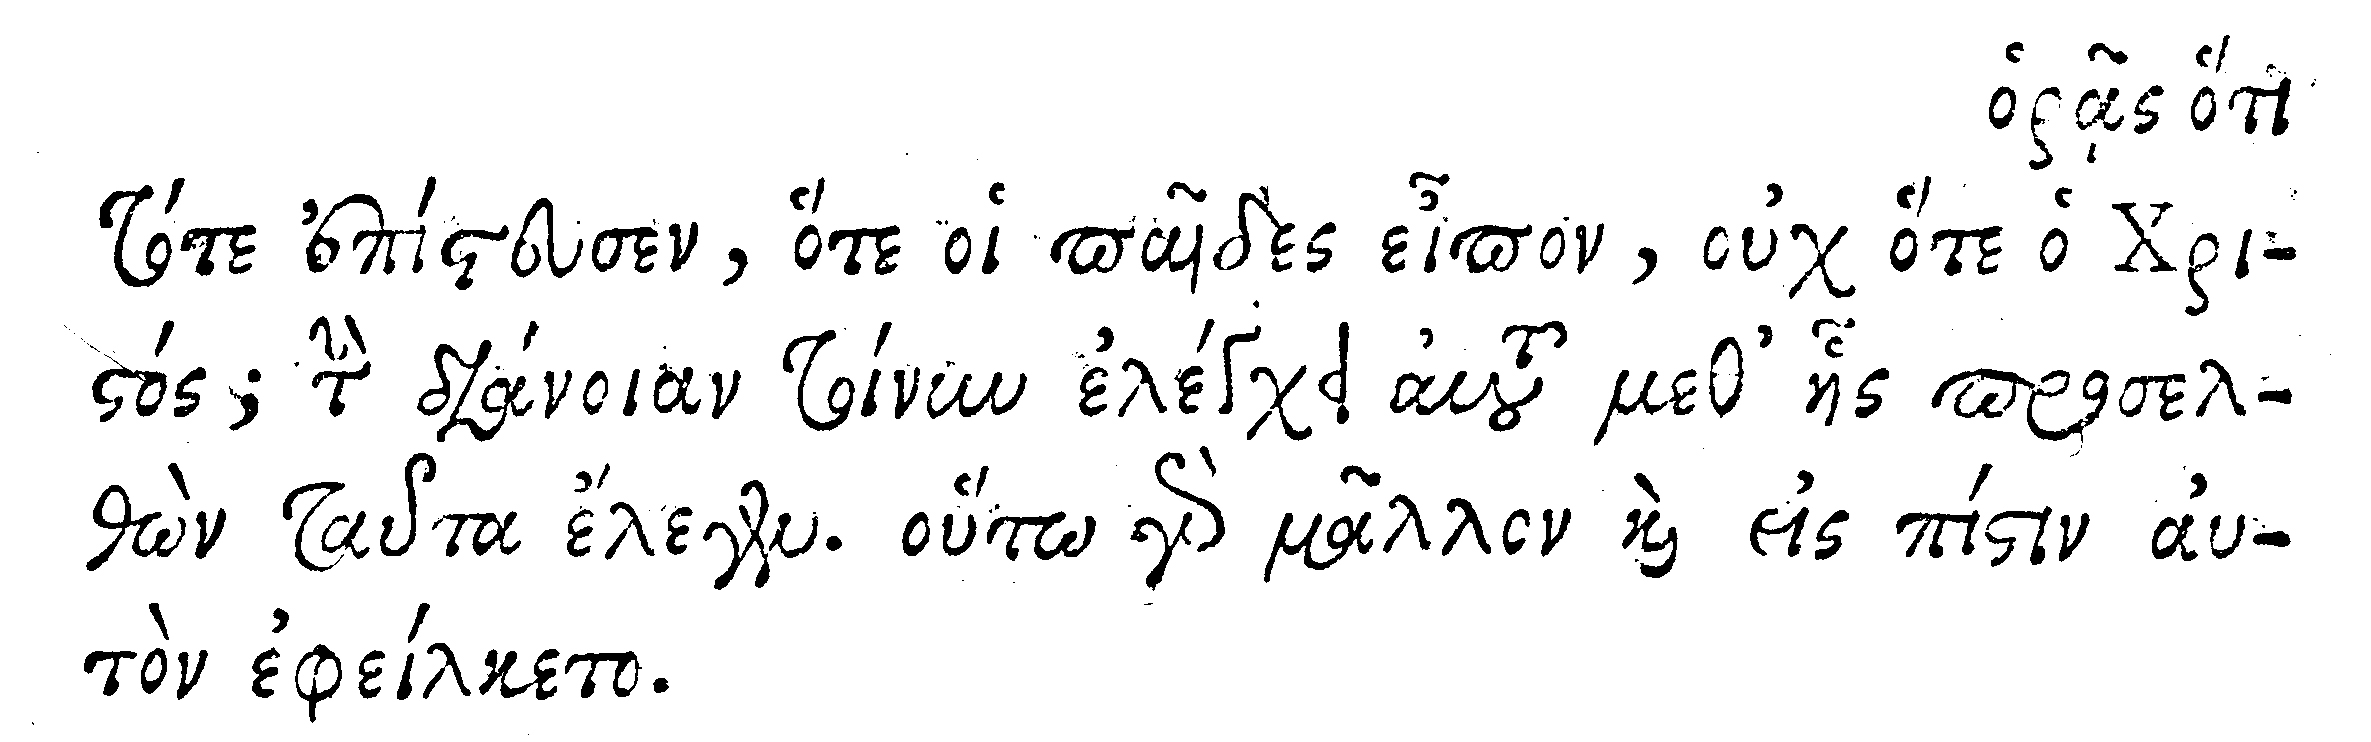 ὁρᾷς ὅτι
τότε ἐπίστευσεν, ὅτε οἱ παῖδες εἶπον, οὐχ ὅτε ὁ Χρι-
στός; τὴν διάνοιαν ταύτην ἐλέγχει αὐτοῦ μεθ᾽ ἧς προσελ-
θὼν ταῦτα ἔλεγεν. οὕτω γὰρ μᾶλλον καὶ εἰς πίστιν αὐ-
τὸν ἐφείλκετο.